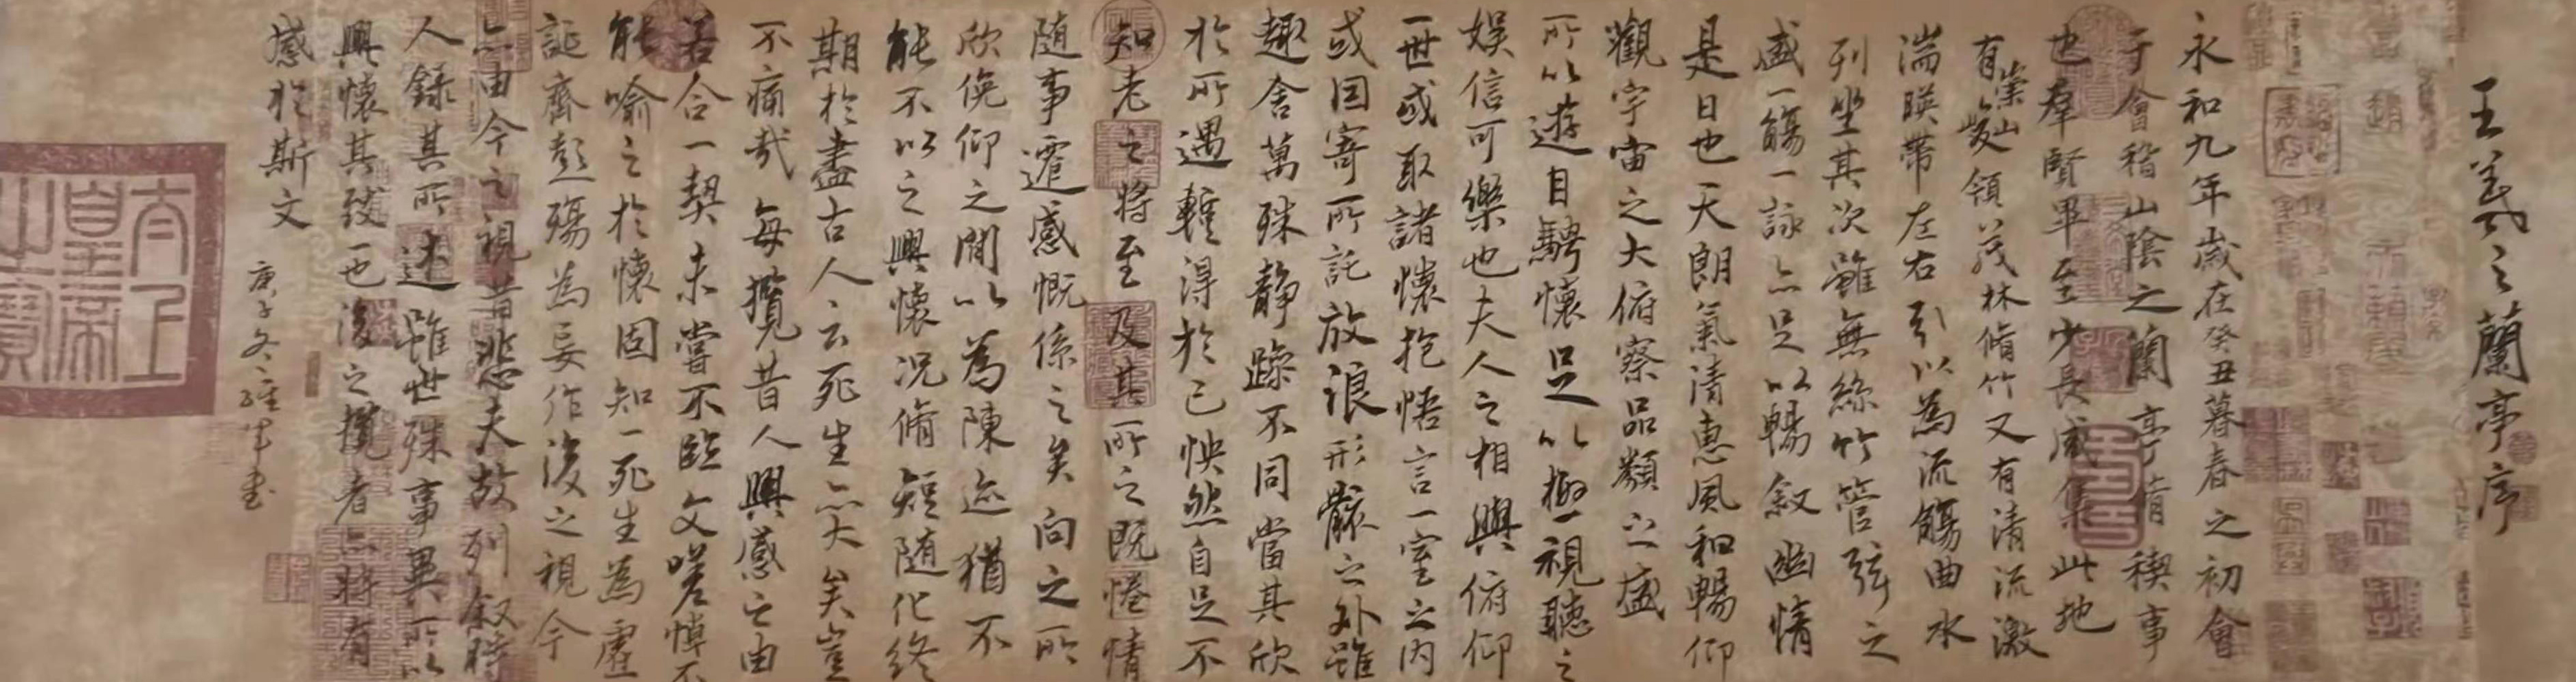 王羲之蘭亭序
永和九年歲在癸丑暮春之初會
于會稽山陰之蘭亭脩稧事
也羣賢畢至少長咸集此地
有崇山峻領茂林脩竹又有清流激
湍暎帶左右引以為流觴曲水
列坐其次雖無絲竹管弦之
盛一觴一詠亦足以暢叙幽情
是日也天朗氣清惠風和暢仰
觀宇宙之大俯察品類之盛
所以遊目騁懷足以極視聽之
娱信可樂也夫人之相與俯仰
一世或取諸懷抱悟言一室之内
或因寄所託放浪形骸之外雖
趣舍萬殊静躁不同當其欣
於所遇輊得於己怏然自足不
知老之將至及其所之既惓情
随事遷感慨係之矣向之所
欣俛仰之間以為陳迹猶不
能不以之興懷况脩短随化終
期於盡古人云死生亦大矣豈
不痛哉每攬昔人興感之由
若合一契未嘗不臨文嗟悼不
能喻之於懷固知一死生為虛
誕齊彭殤為妄作後之視今
亦由今之視昔悲夫故列叙時
人錄其所述雖世殊事異所以
興懷其致一也後之攬者亦將有
感於斯文
庚子冬
書
太上皇帝之寶